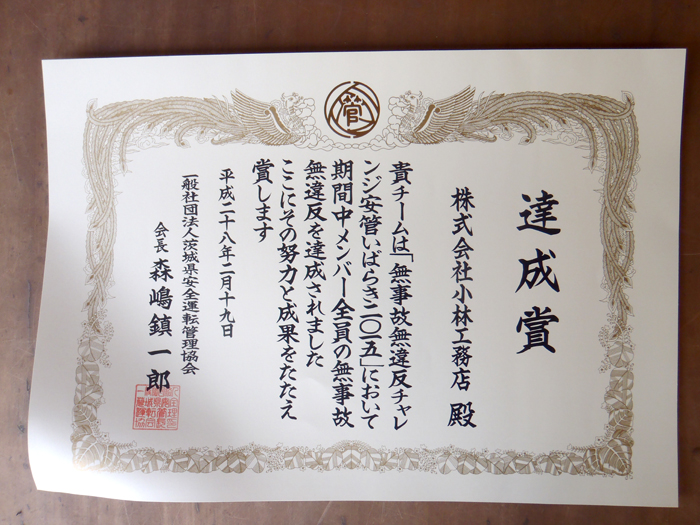 管
達成賞
株式会社小林工務店 殿
貴チームは「無事故無違反チャレ
ンジ安管いばらき二〇一五」において
期間中メンバー全員の無事故
無違反を達成されました
ここにその努力と成果をたたえ
賞します
平成二十八年二月十九日
一般社団法人茨城県安全運転管理協会
会長 森嶋鎮一郎